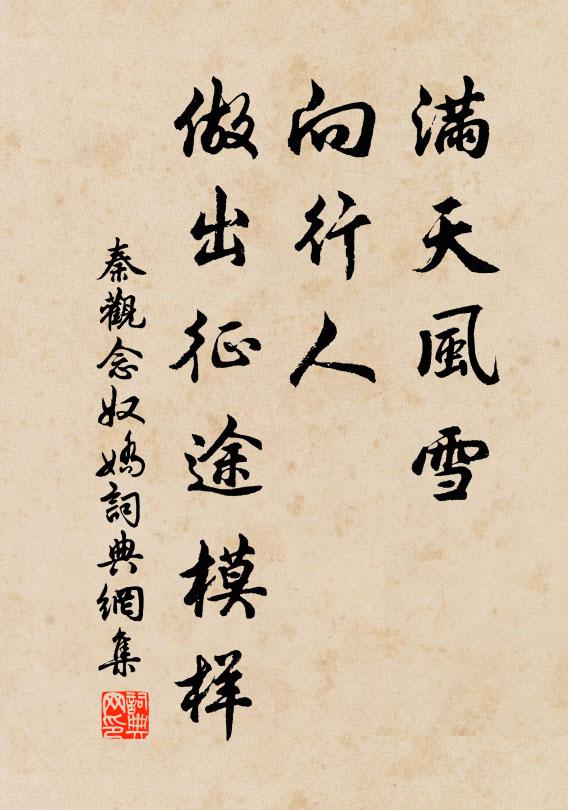 滿天風雪
向行人
做出征途模样
秦觀念奴嬌詞典網集
詞典网印